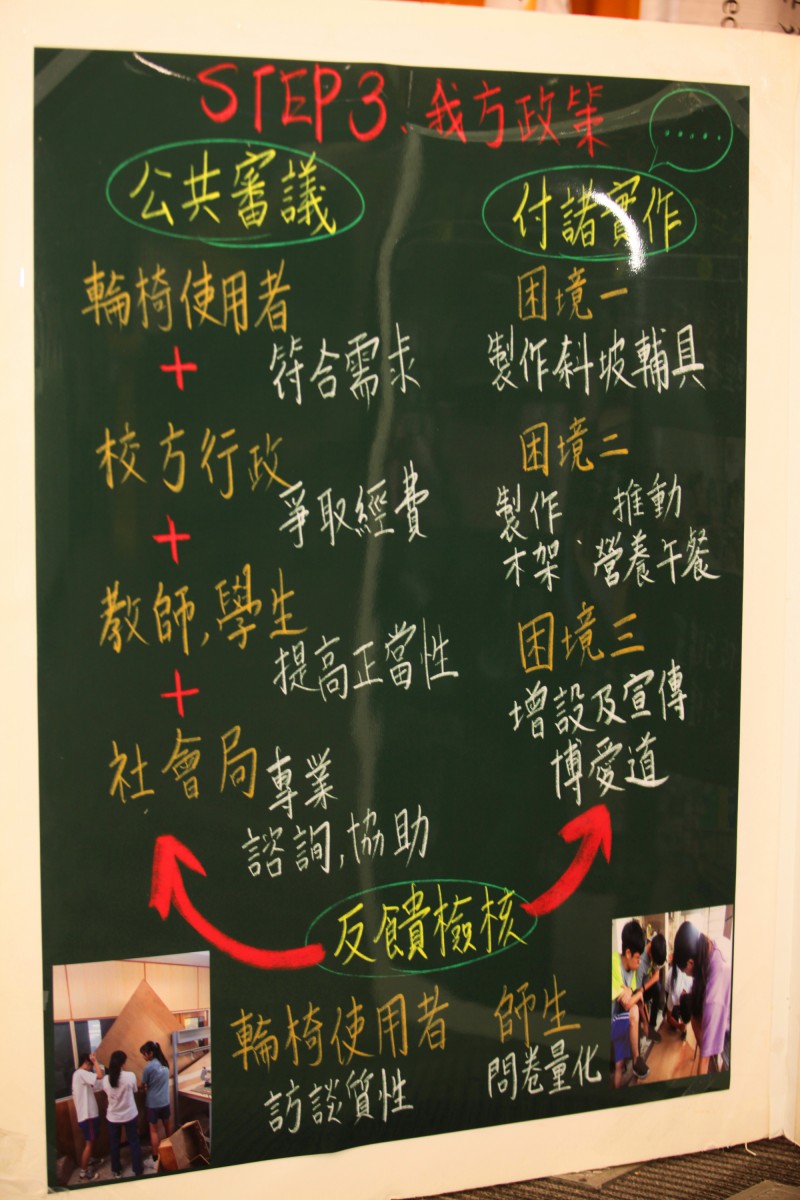 STEP3. 我方政策
.....
公共審議
輪椅使用者
+
符合需求
校方行政
+
爭取經費
教師,學生
+
提高正當性
社會局
專業
諮詢,協助
付諸實作
困境一
製作斜坡輔具
困境二
製作 推動
木架、營養午餐
困境三
增設及宣傳
博愛道
反饋檢核
輪椅使用者
訪談質性
師生
問卷量化